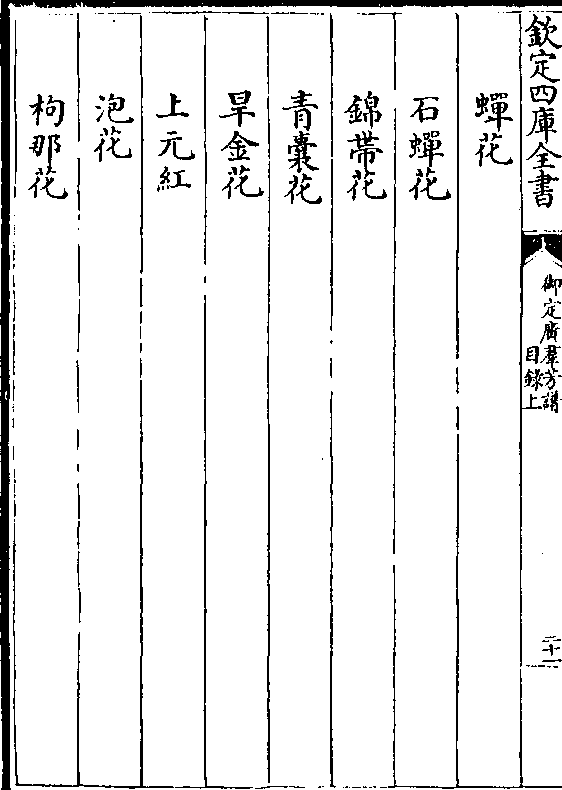 欽定四庫全書
御定廣羣芳譜
目錄上
二十一
蟬花
石蟬花
錦帶花
青囊花
旱金花
上元紅
泡花
枸那花